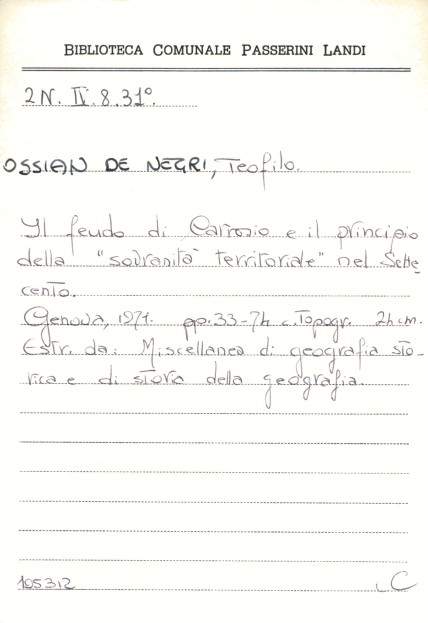 BIBLIOTECA COMUNALE PASSERINI LANDI
2N. IV. 8. 31°.
OSSIAN DE NEGRI, Teofilo.
Il feudo di Carrosio e il principio
della "sovranità territoriale" nel Sette
cento.
Genova, 1971. pp. 33-74 c. Topogr. 24 cm.
Estr. da: Miscellanea di geografia sto-
rica e di storia della geografia.
105312
C